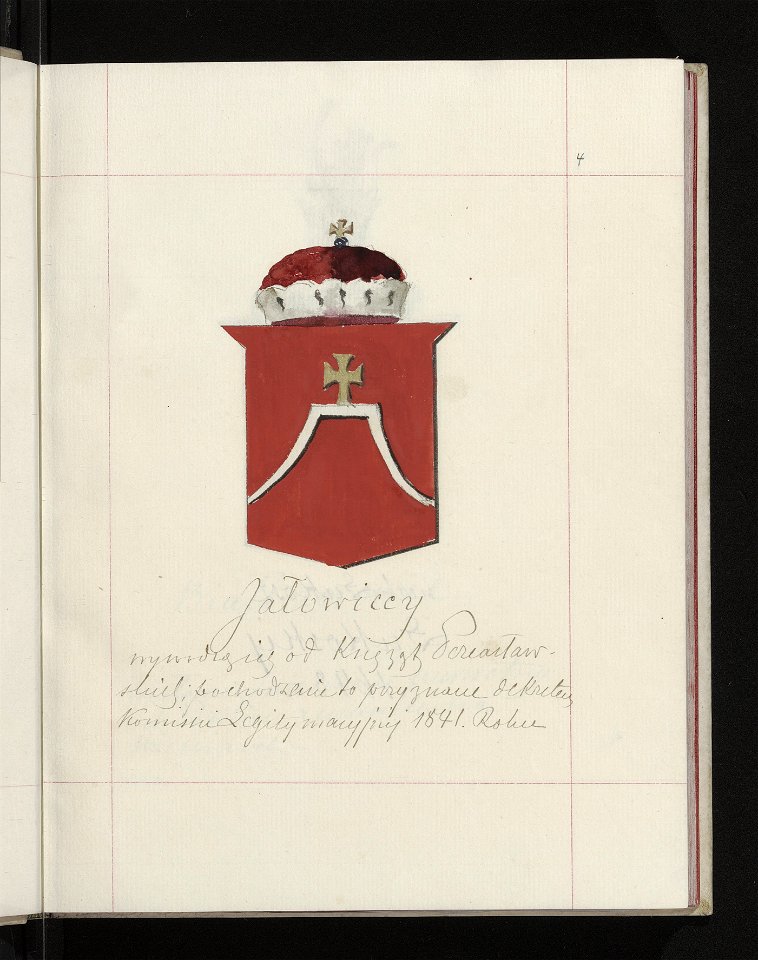 4
Jałowiccy
wywodzą się od Książąt Pereasław-
skich; pochodzenie to przyznane dekretem
Komisii Legitymacyjnej 1841. Roku